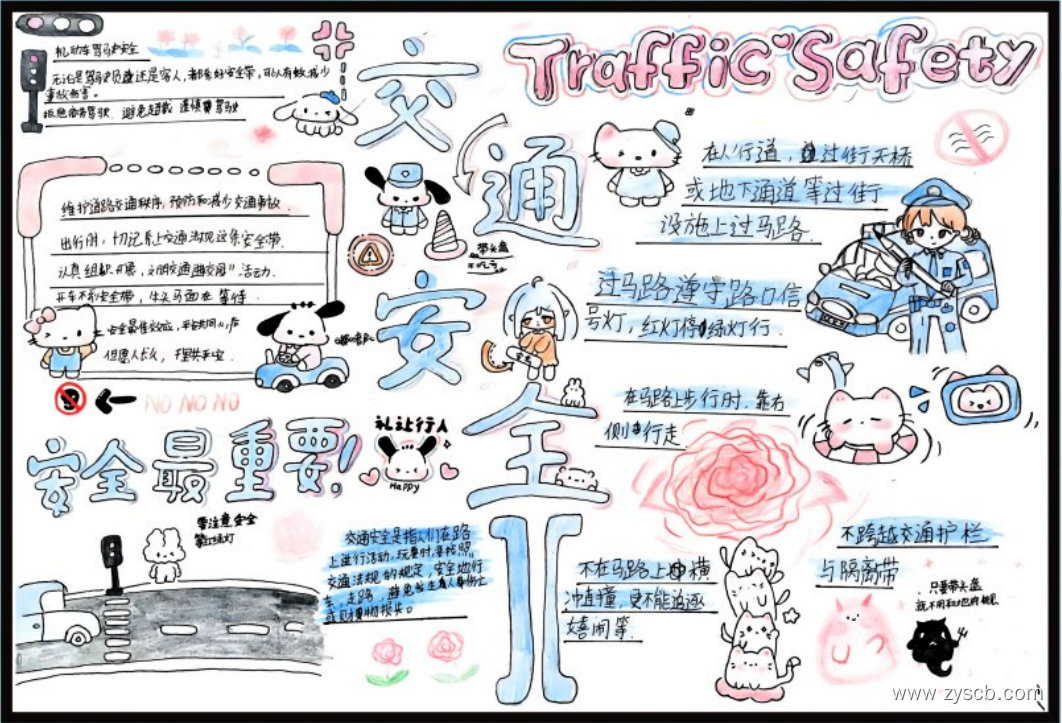 Traffic Safety
交通安全
机动车驾驶安全
无论是驾驶员还是客人，都系好安全带，可以有效减少
事故伤害。
避免超载 谨慎驾驶
维护道路交通秩序，预防和减少交通事故.
出行前，切记系上交通法规这条安全带.
认真组织开展，文明交通进校园"活动.
开车不系安全带，牛头马面在等待.
安全最佳效应，平安共同
但愿人长久，
NO NO NO
安全最重要!
带头盔
礼让行人
Happy
在人行道，过街天桥
或地下通道等过街
设施上过马路.
过马路遵守路口信
号灯，红灯停绿灯行.
在马路上步行时.靠右
侧行走
不在马路上横
冲直撞，更不能追逐
嬉闹等.
不跨越交通护栏
与隔离带
只要带头盔
要注意安全
等红绿灯
交通安全是指人们在路
上进行活动，玩耍时，要按照
交通法规的规定，安全地行
车，走路，避免发生人身伤亡
或财物损失。
www.zyscb.com